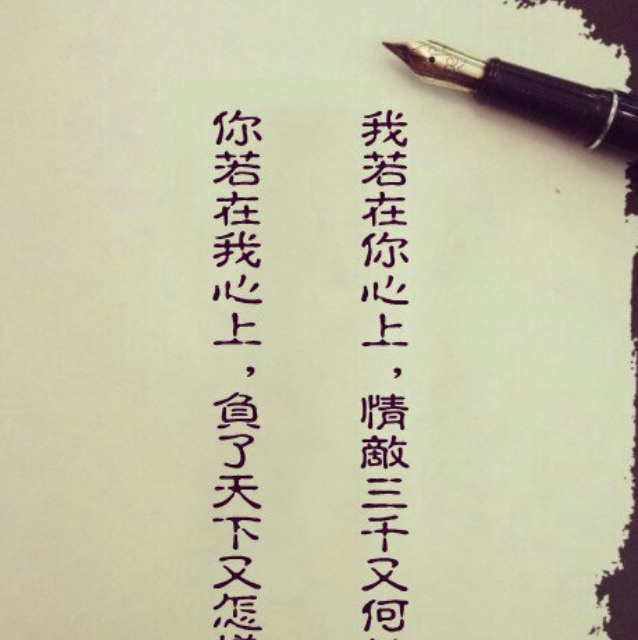 我若在你心上，情敵三千又何
你若在我心上，負了天下又怎樣